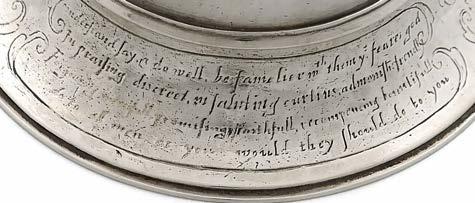 and say & do well, be familier wth them yt feare god
In praising discreet, in saluting curtius, admonish friendly
promising faithfull, recompencing bountifull
to men as you would they should do to you